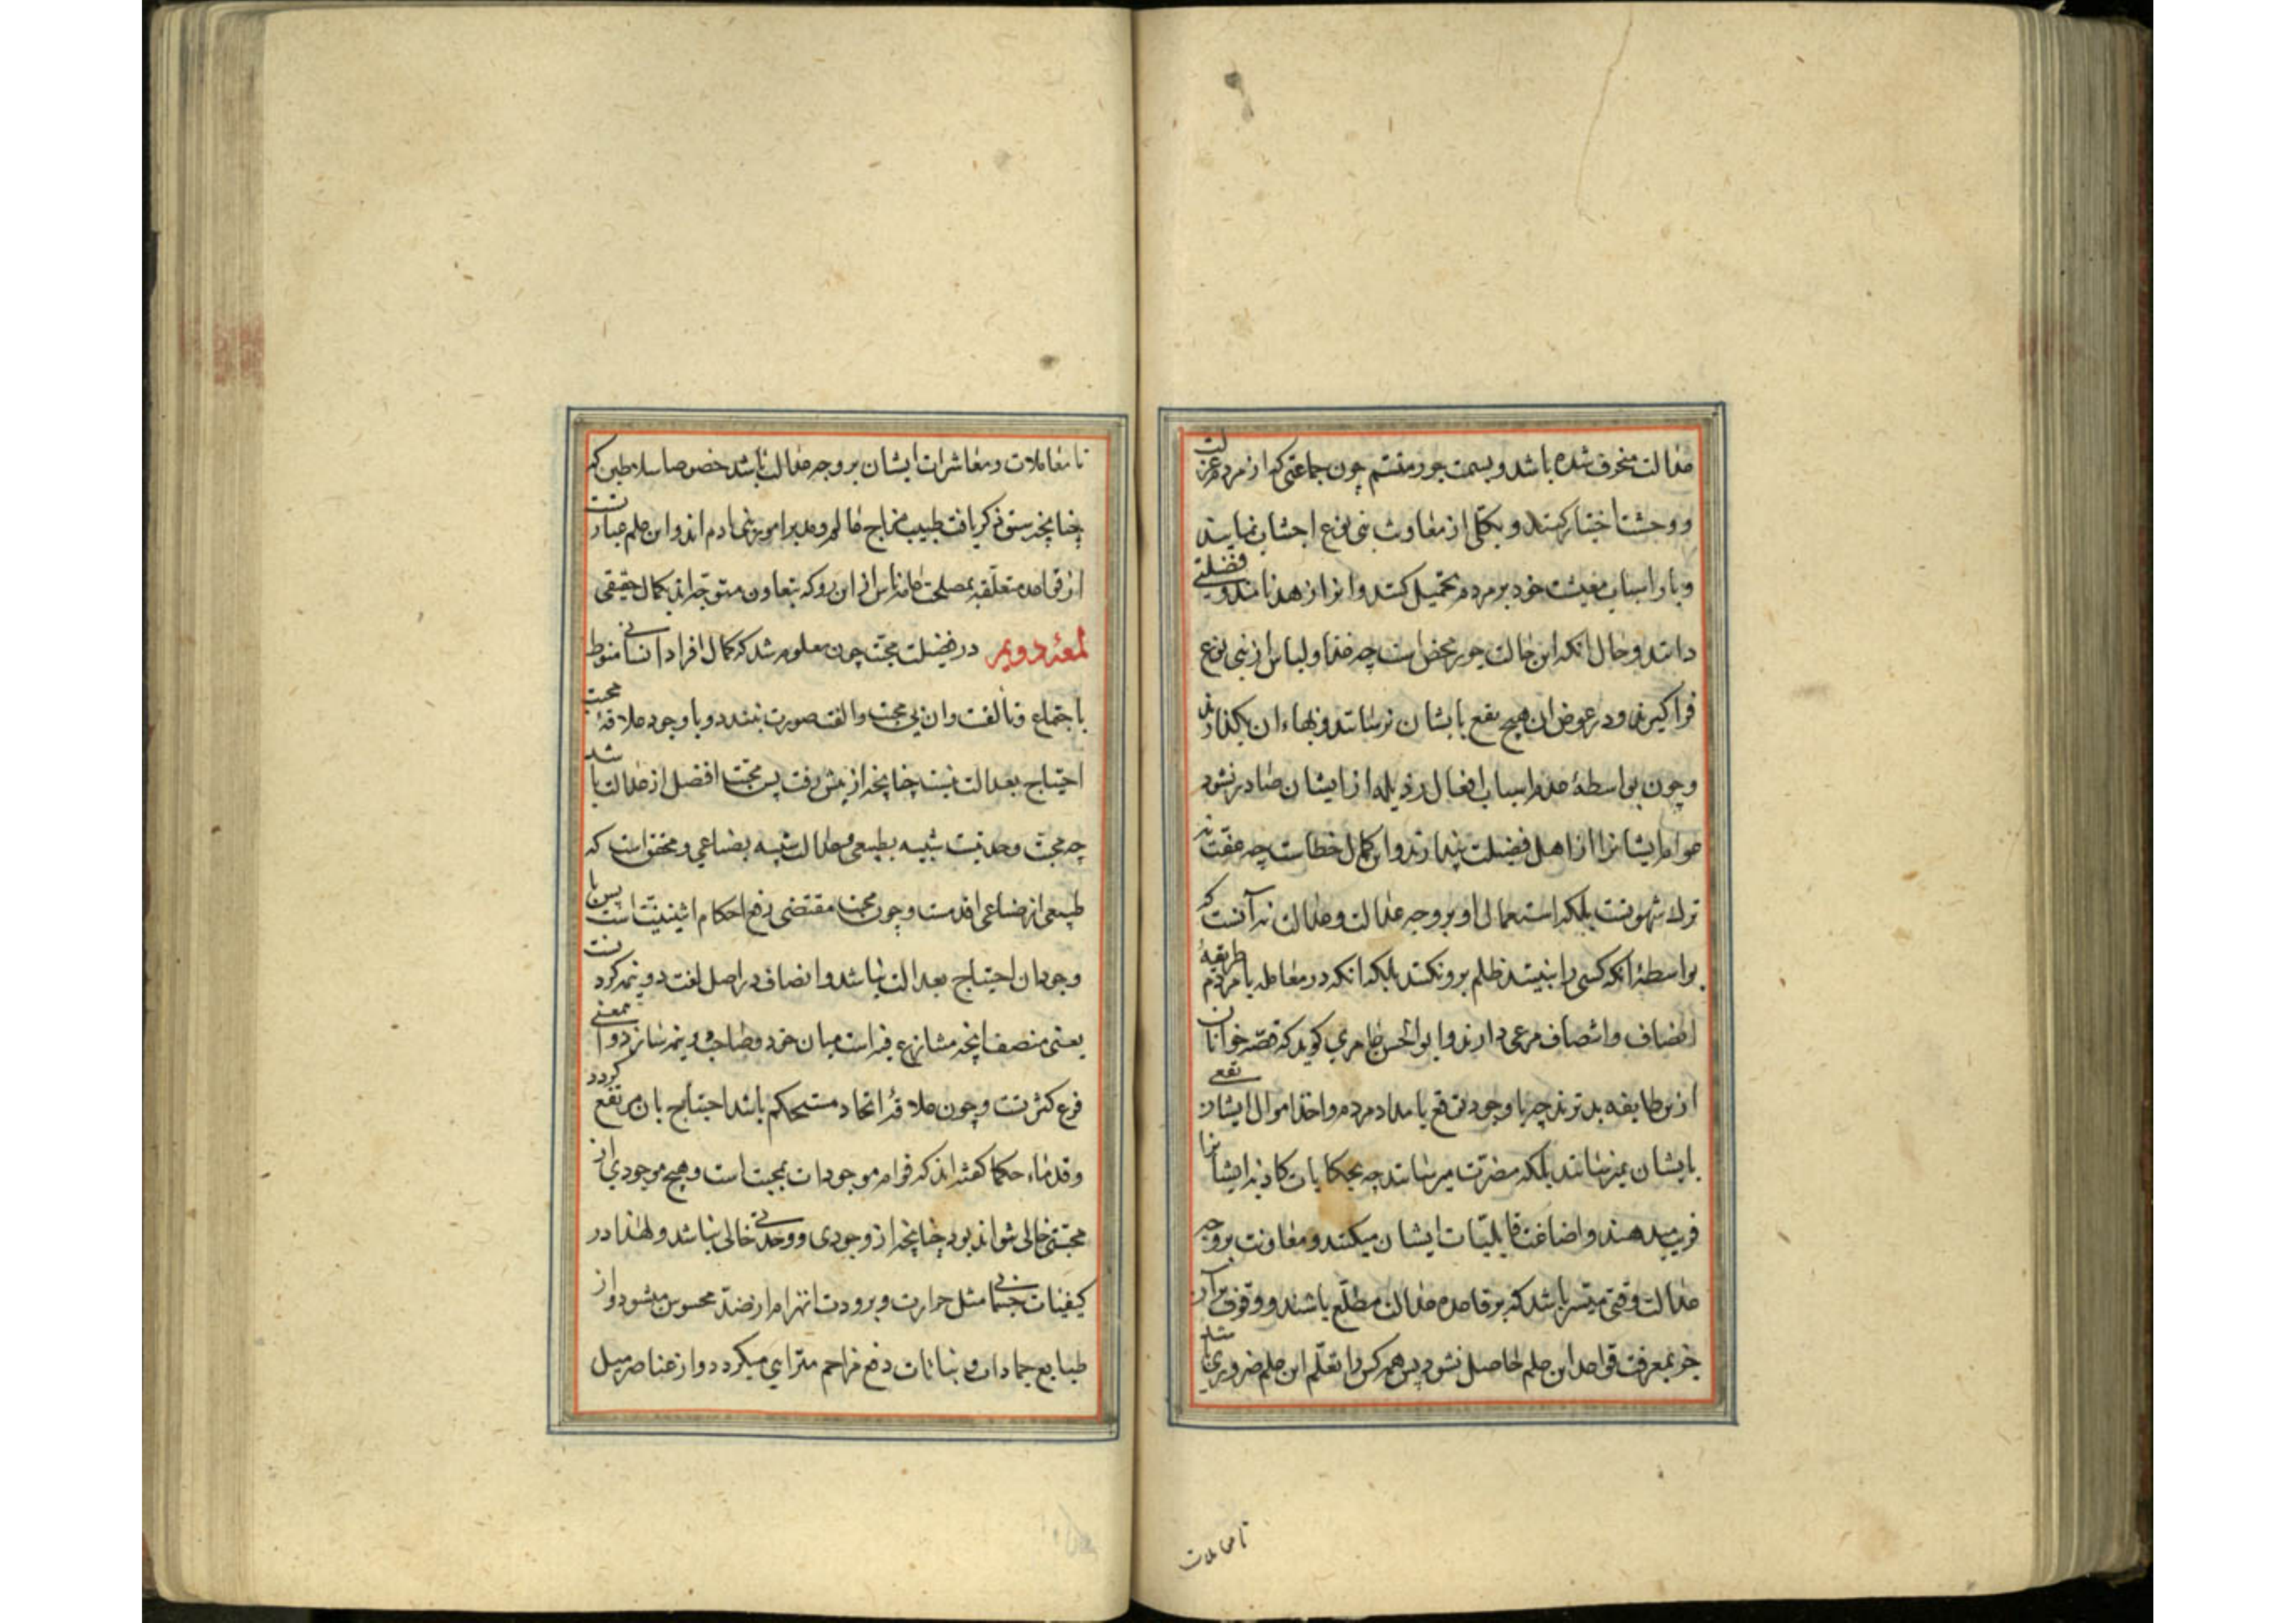 عدالت منحرف شده باشد و بسمت جور متسم چون جماعتی که از مردم عزلت
و وحشت اختیار کنند و بکلی از معاونت بنی نوع اجتناب نمایند
و بار اسباب معیشت خود بر مردم تحمیل کنند و انرا زهد نامند و فضیلتی
دانند و حال انکه این حالت جور محض است چه غذا و لباس از بنی نوع
فراگیرند و در عوض ان هیچ نفع بایشان نرسانند و بهاء ان نگذارند
و چون بواسطهٔ عدم اسباب افعال رذیله از ایشان صادر نشود
عوام ایشانرا از اهل فضیلت پندارند و این کمال خطاست چه عفت نه
ترک شهوتست بلکه استعمال او بر وجه عدالت و عدالت نه آنست که
بواسطهٔ انکه کسی را نبینند ظلم برو نکنند بلکه انکه در معامله با مردم طریقهٔ
انصاف و انتصاف مرعی دارند و ابوالحسن عامری کوید که قصه خوانان
ازین طایفه بدترند چه با وجود توقع بامداد مردم و اخذ اموال ایشان نفعی
بایشان نمیرسانند بلکه مضرت میرسانند چه بحکایات کاذبه ایشانرا
فریب میدهند و اضاعت قابلیات ایشان میکنند و معاونت بر وجه
عدالت وقتی میسر باشد که بر قاعده عدالت مطلع باشند و وقوف بر آن
جز بمعرفت قواعد این علم حاصل نشود پس همه کس را تعلم این علم ضروری باشد
تا معاملات
تا معاملات و معاشرات ایشان بر وجه عدالت باشد خصوصا سلاطین که
چنانچه سبق ذکر یافت طبیب مزاج عالم و مدبر امور بنی ادم اند و این علم عبارتست
از قواعد متعلقه بمصلحت عامه ناس از ان رو که بتعاون متوجه اند بکمال حقیقی
لمعهٔ دویم در فضیلت محبت چون معلوم شد که کمال افراد انسانی منوط
باجتماع و تالفت و ان بی محبت و الفت صورت نبندد و با وجود علاقهٔ محبت
احتیاج بعدالت نیست چنانچه از پیش رفت پس محبت افضل از عدالت باشد
چه محبت وحدتیست شبیه بطبیعی و عدالت شبیه بصناعی و محقق است که
طبیعی از صناعی اقدمست و چون محبت مقتضی رفع احکام اثنینیت است پس با
وجود ان احتیاج بعدالت نباشد و انصاف در اصل لغت دو نیم کردنست
یعنی منصف انچه متنازع فیه است میان خود و صاحب دو نیم سازد و این معنی
فرع کثرتست و چون علاقهٔ اتحاد مستحکم باشد احتیاج بان مرتفع کردد
و قدماء حکما کفته اند که قوام موجودات بمحبت است و هیچ موجودی از
محبتی خالی نتواند بود چنانچه از وجودی و وحدتی خالی نباشد و لهذا در
کیفیات جسمانی مثل حرارت و برودت انهزام از ضد محسوس میشود و از
طبایع جمادات و نباتات دفع مزاحم مترای میکردد و از عناصر میل